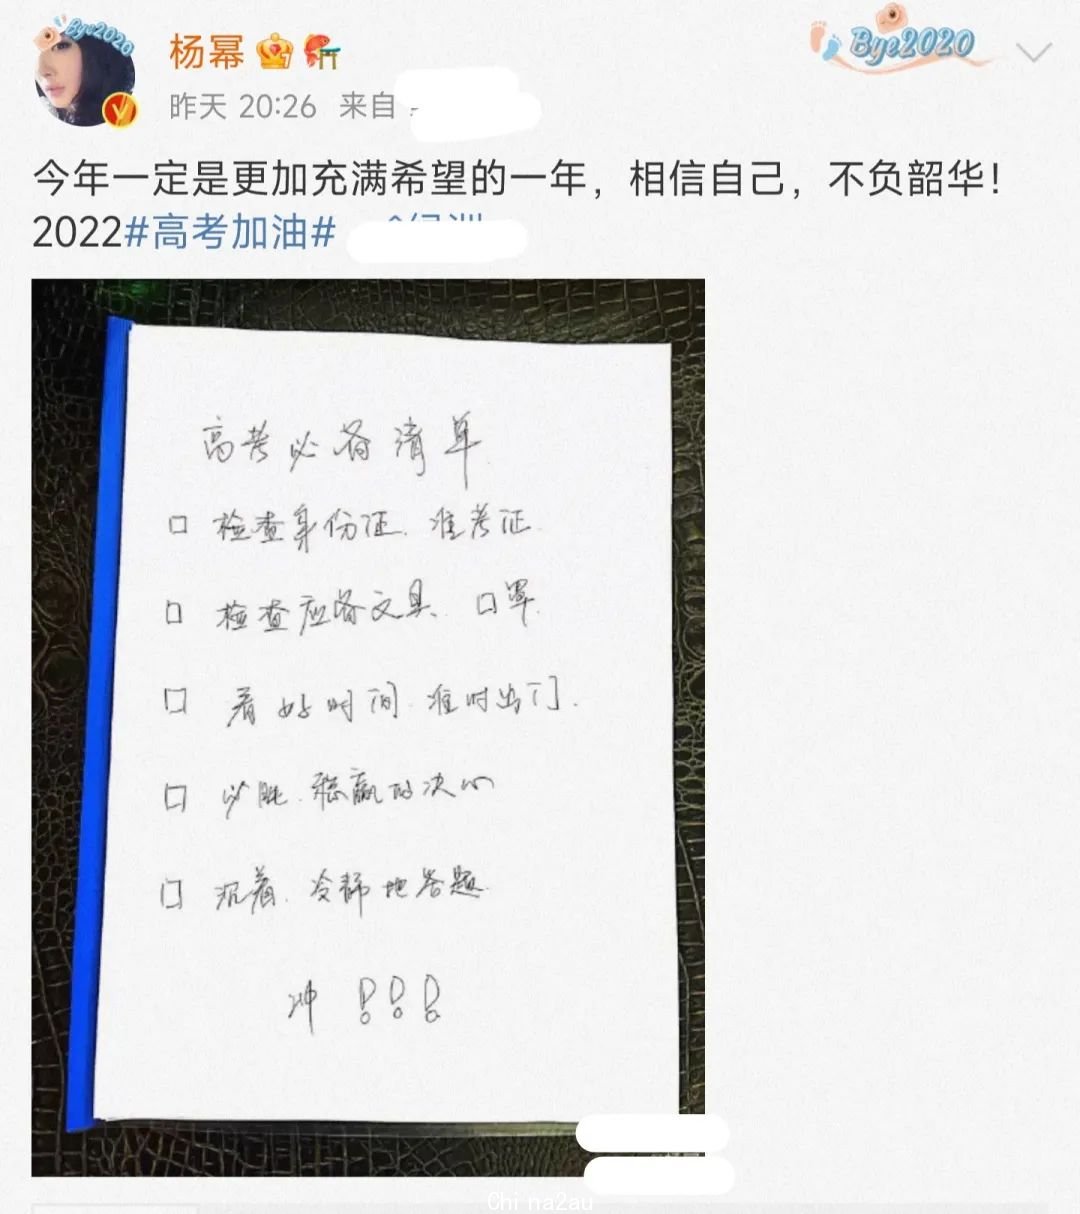 Bye2020
杨幂
Bye2020
昨天 20:26 来自
今年一定是更加充满希望的一年，相信自己，不负韶华！
2022#高考加油#
高考必备清单
口 检查身份证、准考证.
口 检查应备文具、口罩.
口 看好时间.准时出门.
口 必胜.稳赢的决心
口 沉着.冷静地答题.
冲 !!!
China2au